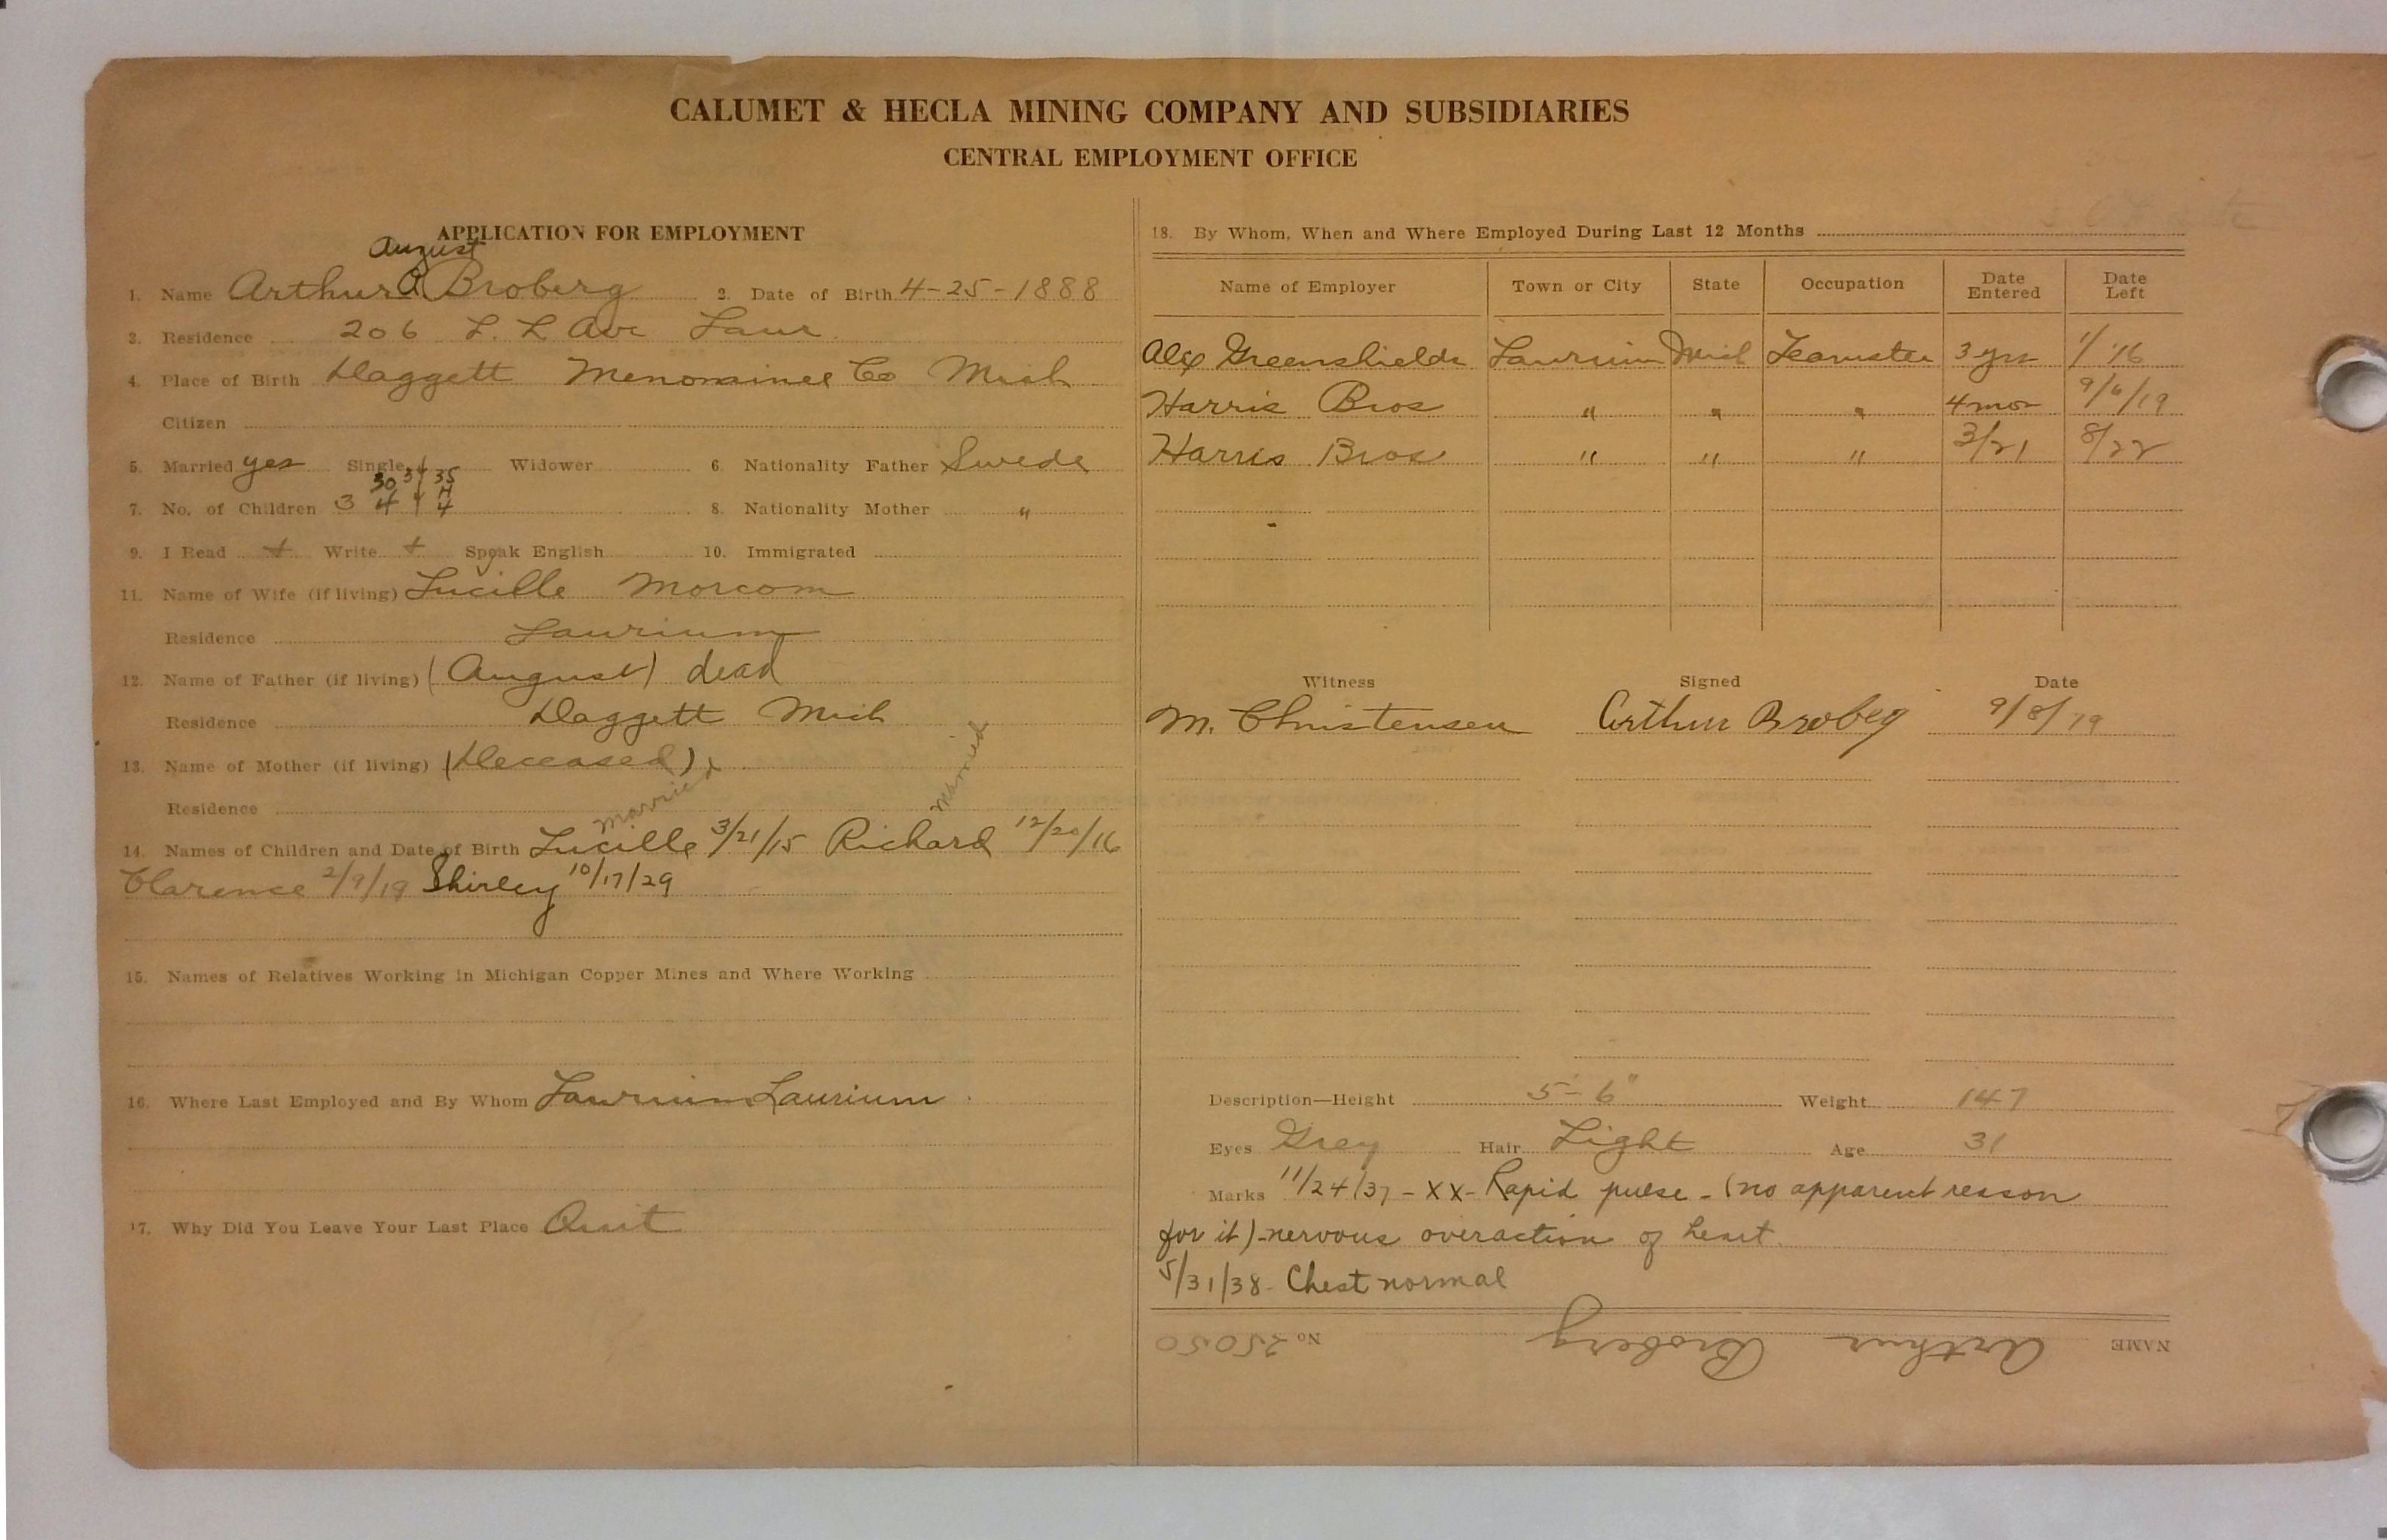 CALUMET & HECLA MINING COMPANY AND SUBSIDIARIES
CENTRAL EMPLOYMENT OFFICE
APPLICATION FOR EMPLOYMENT
August
1. Name Arthur A Broberg 2. Date of Birth 4-25-1888
3. Residence 206 L. L Ave Laur
4. Place of Birth Daggett Menominee Co Mich
Citizen
5. Married yes Single Widower 6. Nationality Father Swede
30 34 35
7. No. of Children 3 4 4 4 8. Nationality Mother "
9. I Read + Write + Speak English 10. Immigrated
11. Name of Wife (if living) Lucille Morcom
Residence Laurium
12. Name of Father (if living) (August) dead
Residence Daggett Mich
13. Name of Mother (if living) (Deceased)
Residence
married married
14. Names of Children and Date of Birth Lucille 3/21/15 Richard 12/20/16
Clarence 2/9/19 Shirley 10/17/29
15. Names of Relatives Working in Michigan Copper Mines and Where Working
16. Where Last Employed and By Whom Laurium Laurium
17. Why Did You Leave Your Last Place Quit
18. By Whom, When and Where Employed During Last 12 Months
Name of Employer Town or City State Occupation Date Entered Date Left
Alex Greenshields Laurium Mich Teamster 3 yrs 1/16
Harris Bros " " " 4 mos 9/6/19
Harris Bros " " " 3/21 8/22
Witness Signed Date
M. Christensen Arthur Broberg 9/8/19
Description—Height 5'-6" Weight 147
Eyes Grey Hair Light Age 31
Marks 11/24/37 - XX - Rapid pulse - (no apparent reason
for it) - nervous overaction of heart.
5/31/38 - Chest normal
NAME Arthur Broberg No 25050